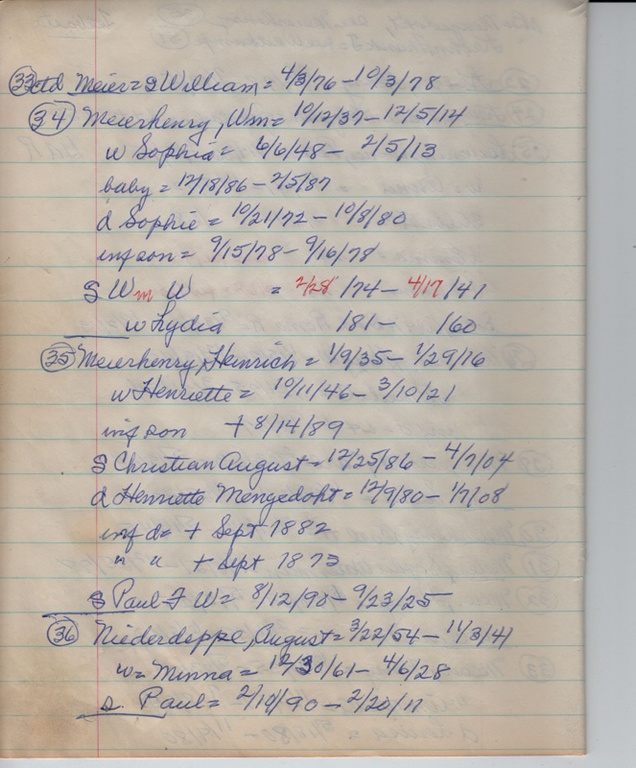 (33) ctd Meier = S William = 4/3/76 - 10/3/78
(34) Meierhenry, Wm = 10/12/37 - 12/5/14
w Sophia = 6/6/48 - 2/5/13
baby = 12/18/86 - 2/5/87
d Sophie = 10/21/72 - 10/8/80
inf son = 9/15/78 - 9/16/78
S Wm W = 2/28/74 - 4/17/41
w Lydia /81 - /60
(35) Meierhenry, Heinrich = 1/9/35 - 1/29/16
w Henriette = 10/11/46 - 3/10/21
inf son + 8/14/89
S Christian August = 12/25/86 - 4/7/04
d Henriette Mengedoht = 12/9/80 - 1/7/08
inf d = + Sept 1882
" " + Sept 1873
S Paul F W = 8/12/90 - 9/23/25
(36) Niederdeppe, August = 3/22/54 - 11/3/41
w = Minna = 12/30/61 - 4/6/28
s. Paul = 2/10/90 - 2/20/17